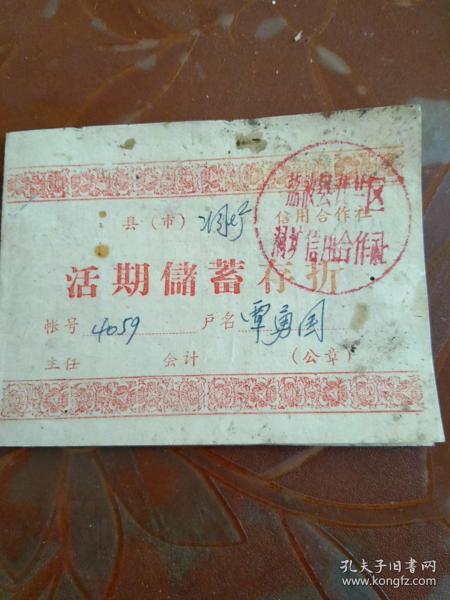 县（市） 信用合作社
信用合作社
活期儲蓄存折
帐号 4059 户名 覃勇国
主任 会计 （公章）
孔夫子旧书网
www.kongfz.com